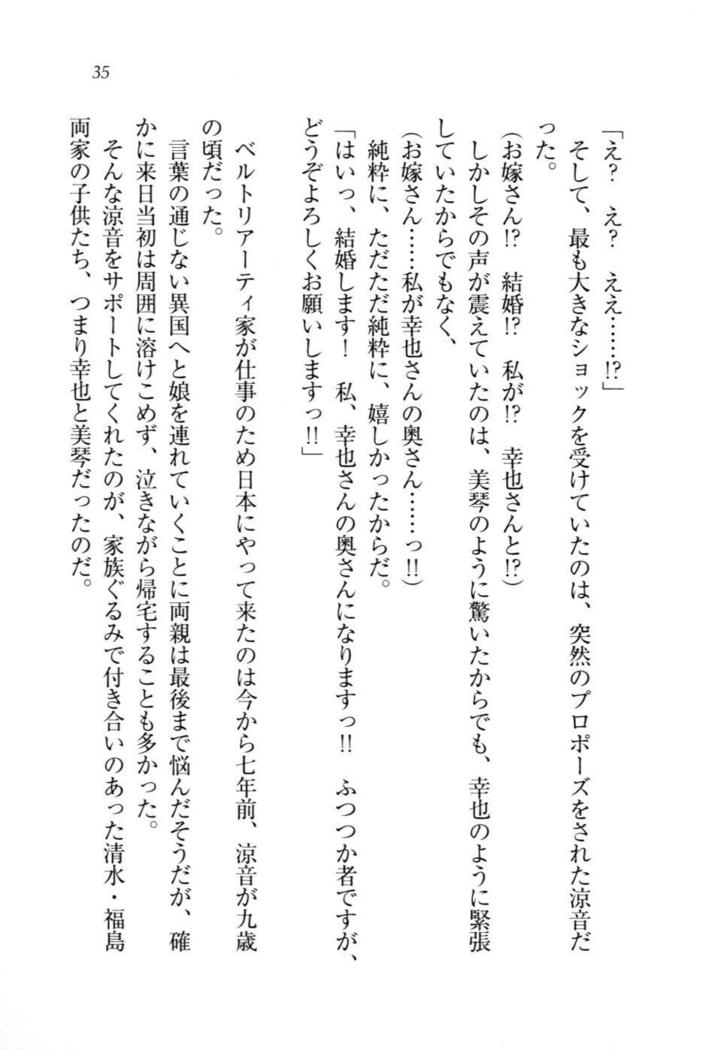 35
「え?　え?　ええ……!?」
　そして、最も大きなショックを受けていたのは、突然のプロポーズをされた涼音だ
った。
(お嫁さん!?　結婚!?　私が!?　幸也さんと!?)
　しかしその声が震えていたのは、美琴のように驚いたからでも、幸也のように緊張
していたからでもなく、
(お嫁さん……私が幸也さんの奥さん……っ!!)
　純粋に、ただただ純粋に、嬉しかったからだ。
「はいっ、結婚します!　私、幸也さんの奥さんになりますっ!!　ふつつか者ですが、
どうぞよろしくお願いしますっ!!」
　ベルトリアーティ家が仕事のため日本にやって来たのは今から七年前、涼音が九歳
の頃だった。
　言葉の通じない異国へと娘を連れていくことに両親は最後まで悩んだそうだが、確
かに来日当初は周囲に溶けこめず、泣きながら帰宅することも多かった。
　そんな涼音をサポートしてくれたのが、家族ぐるみで付き合いのあった清水・福島
両家の子供たち、つまり幸也と美琴だったのだ。